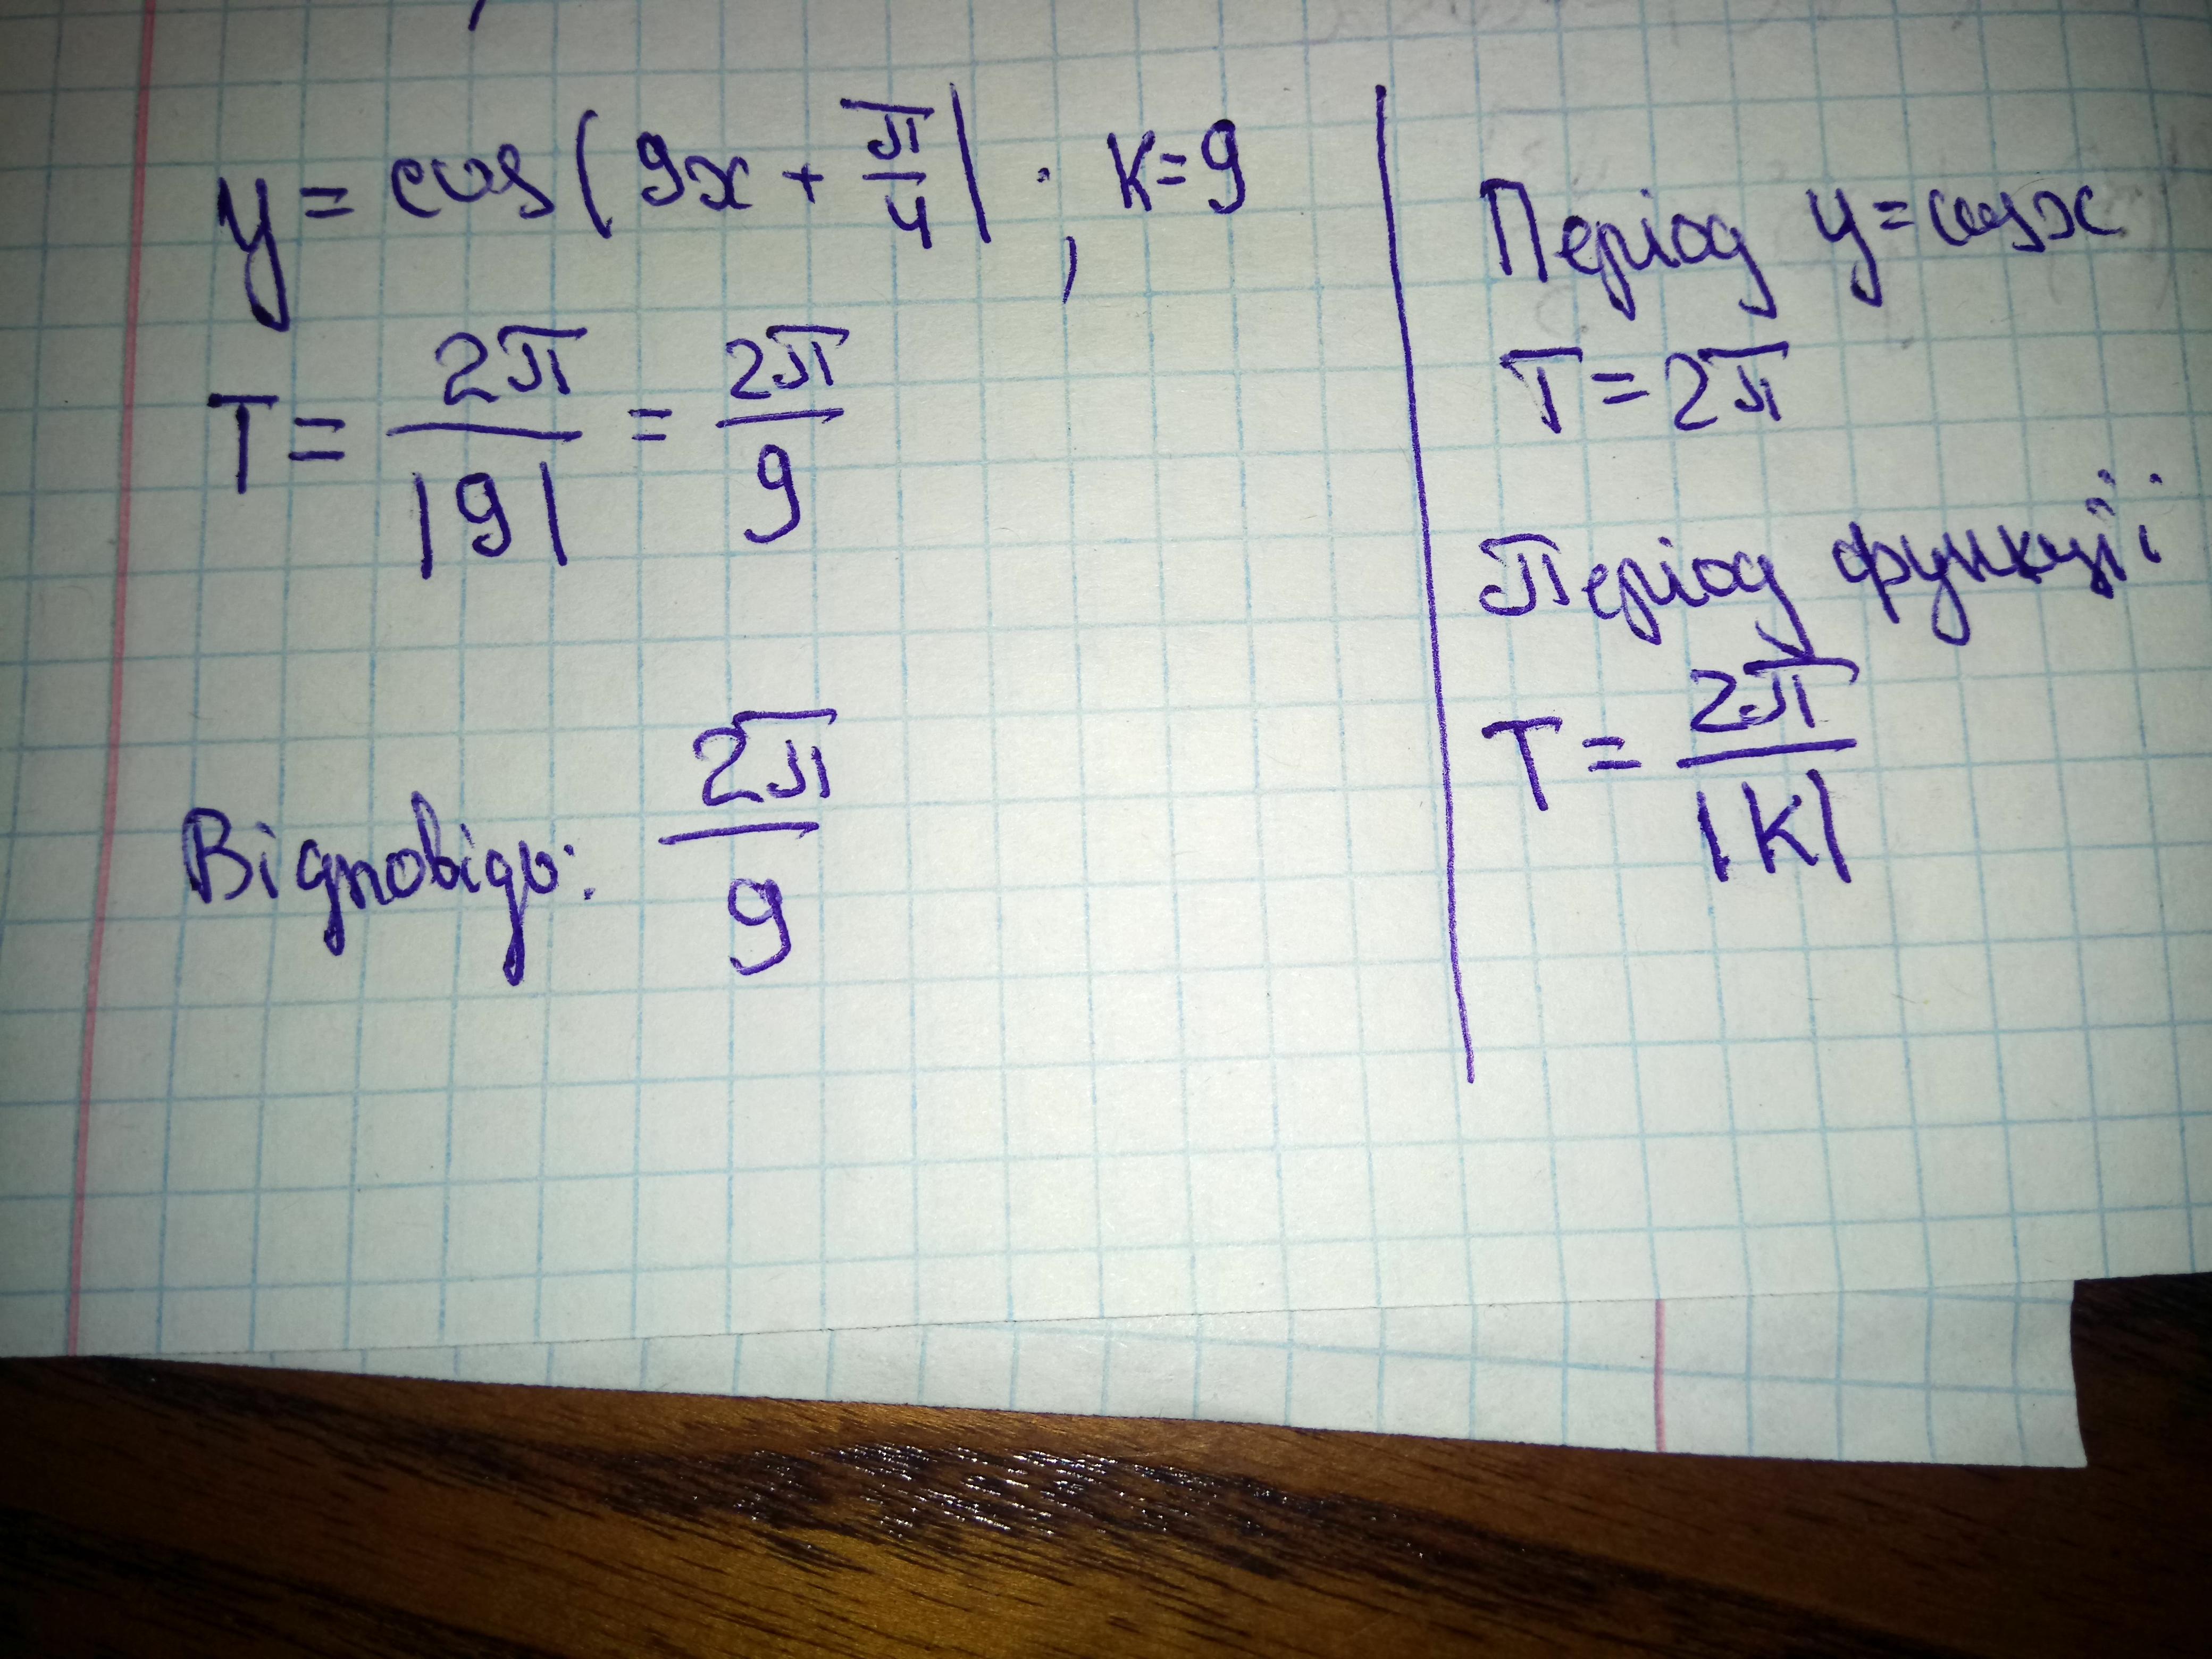 y = cos(9x + π/4); K=9
T = 2π/|9| = 2π/9
Відповідь: 2π/9
Період y=cosx
T=2π
Період функції
T = 2π/|K|